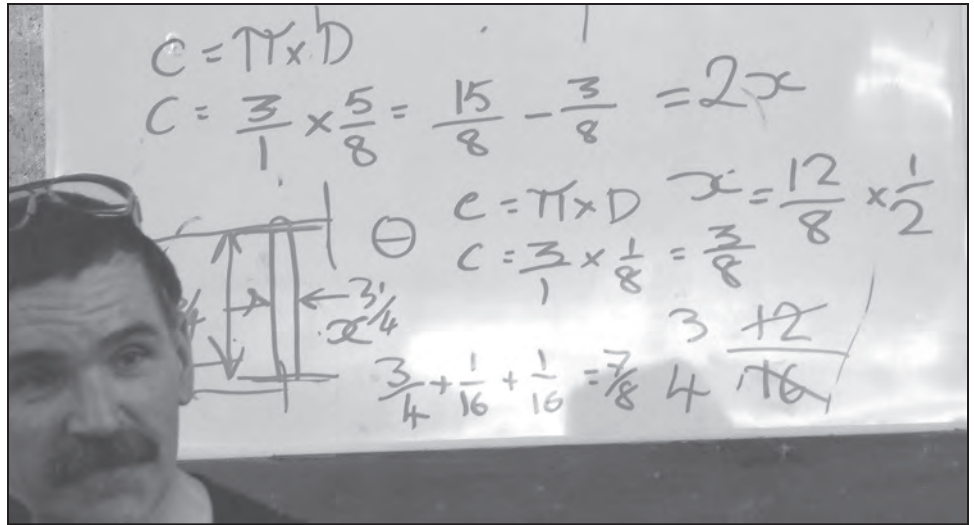 C = π × D
C = 3/1 × 5/8 = 15/8 - 3/8 = 2x
C = π × D x = 12/8 × 1/2
C = 3/1 × 1/8 = 3/8
3/4
x
3/4 + 1/16 + 1/16 = 7/8
3/4 12/16